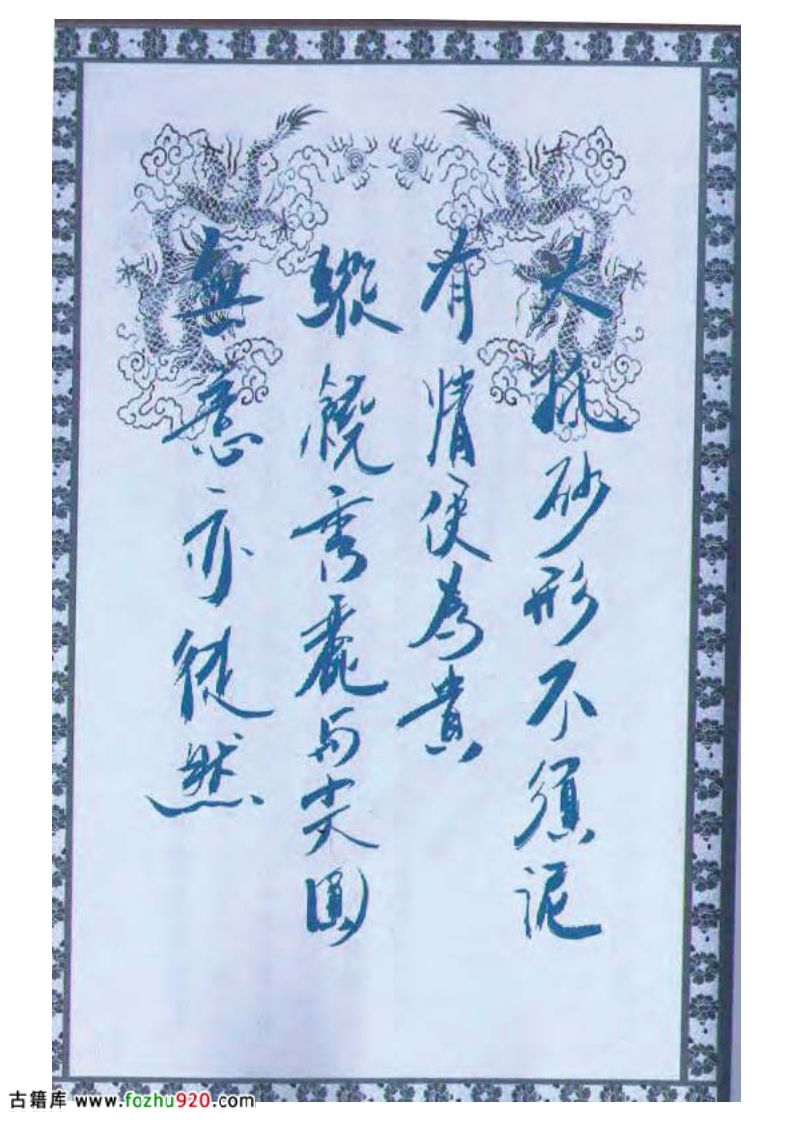 大抵砂形不須泥
有情便為貴
縱饒秀麗與尖圓
無意亦徒然
古籍库 www.fozhu920.com